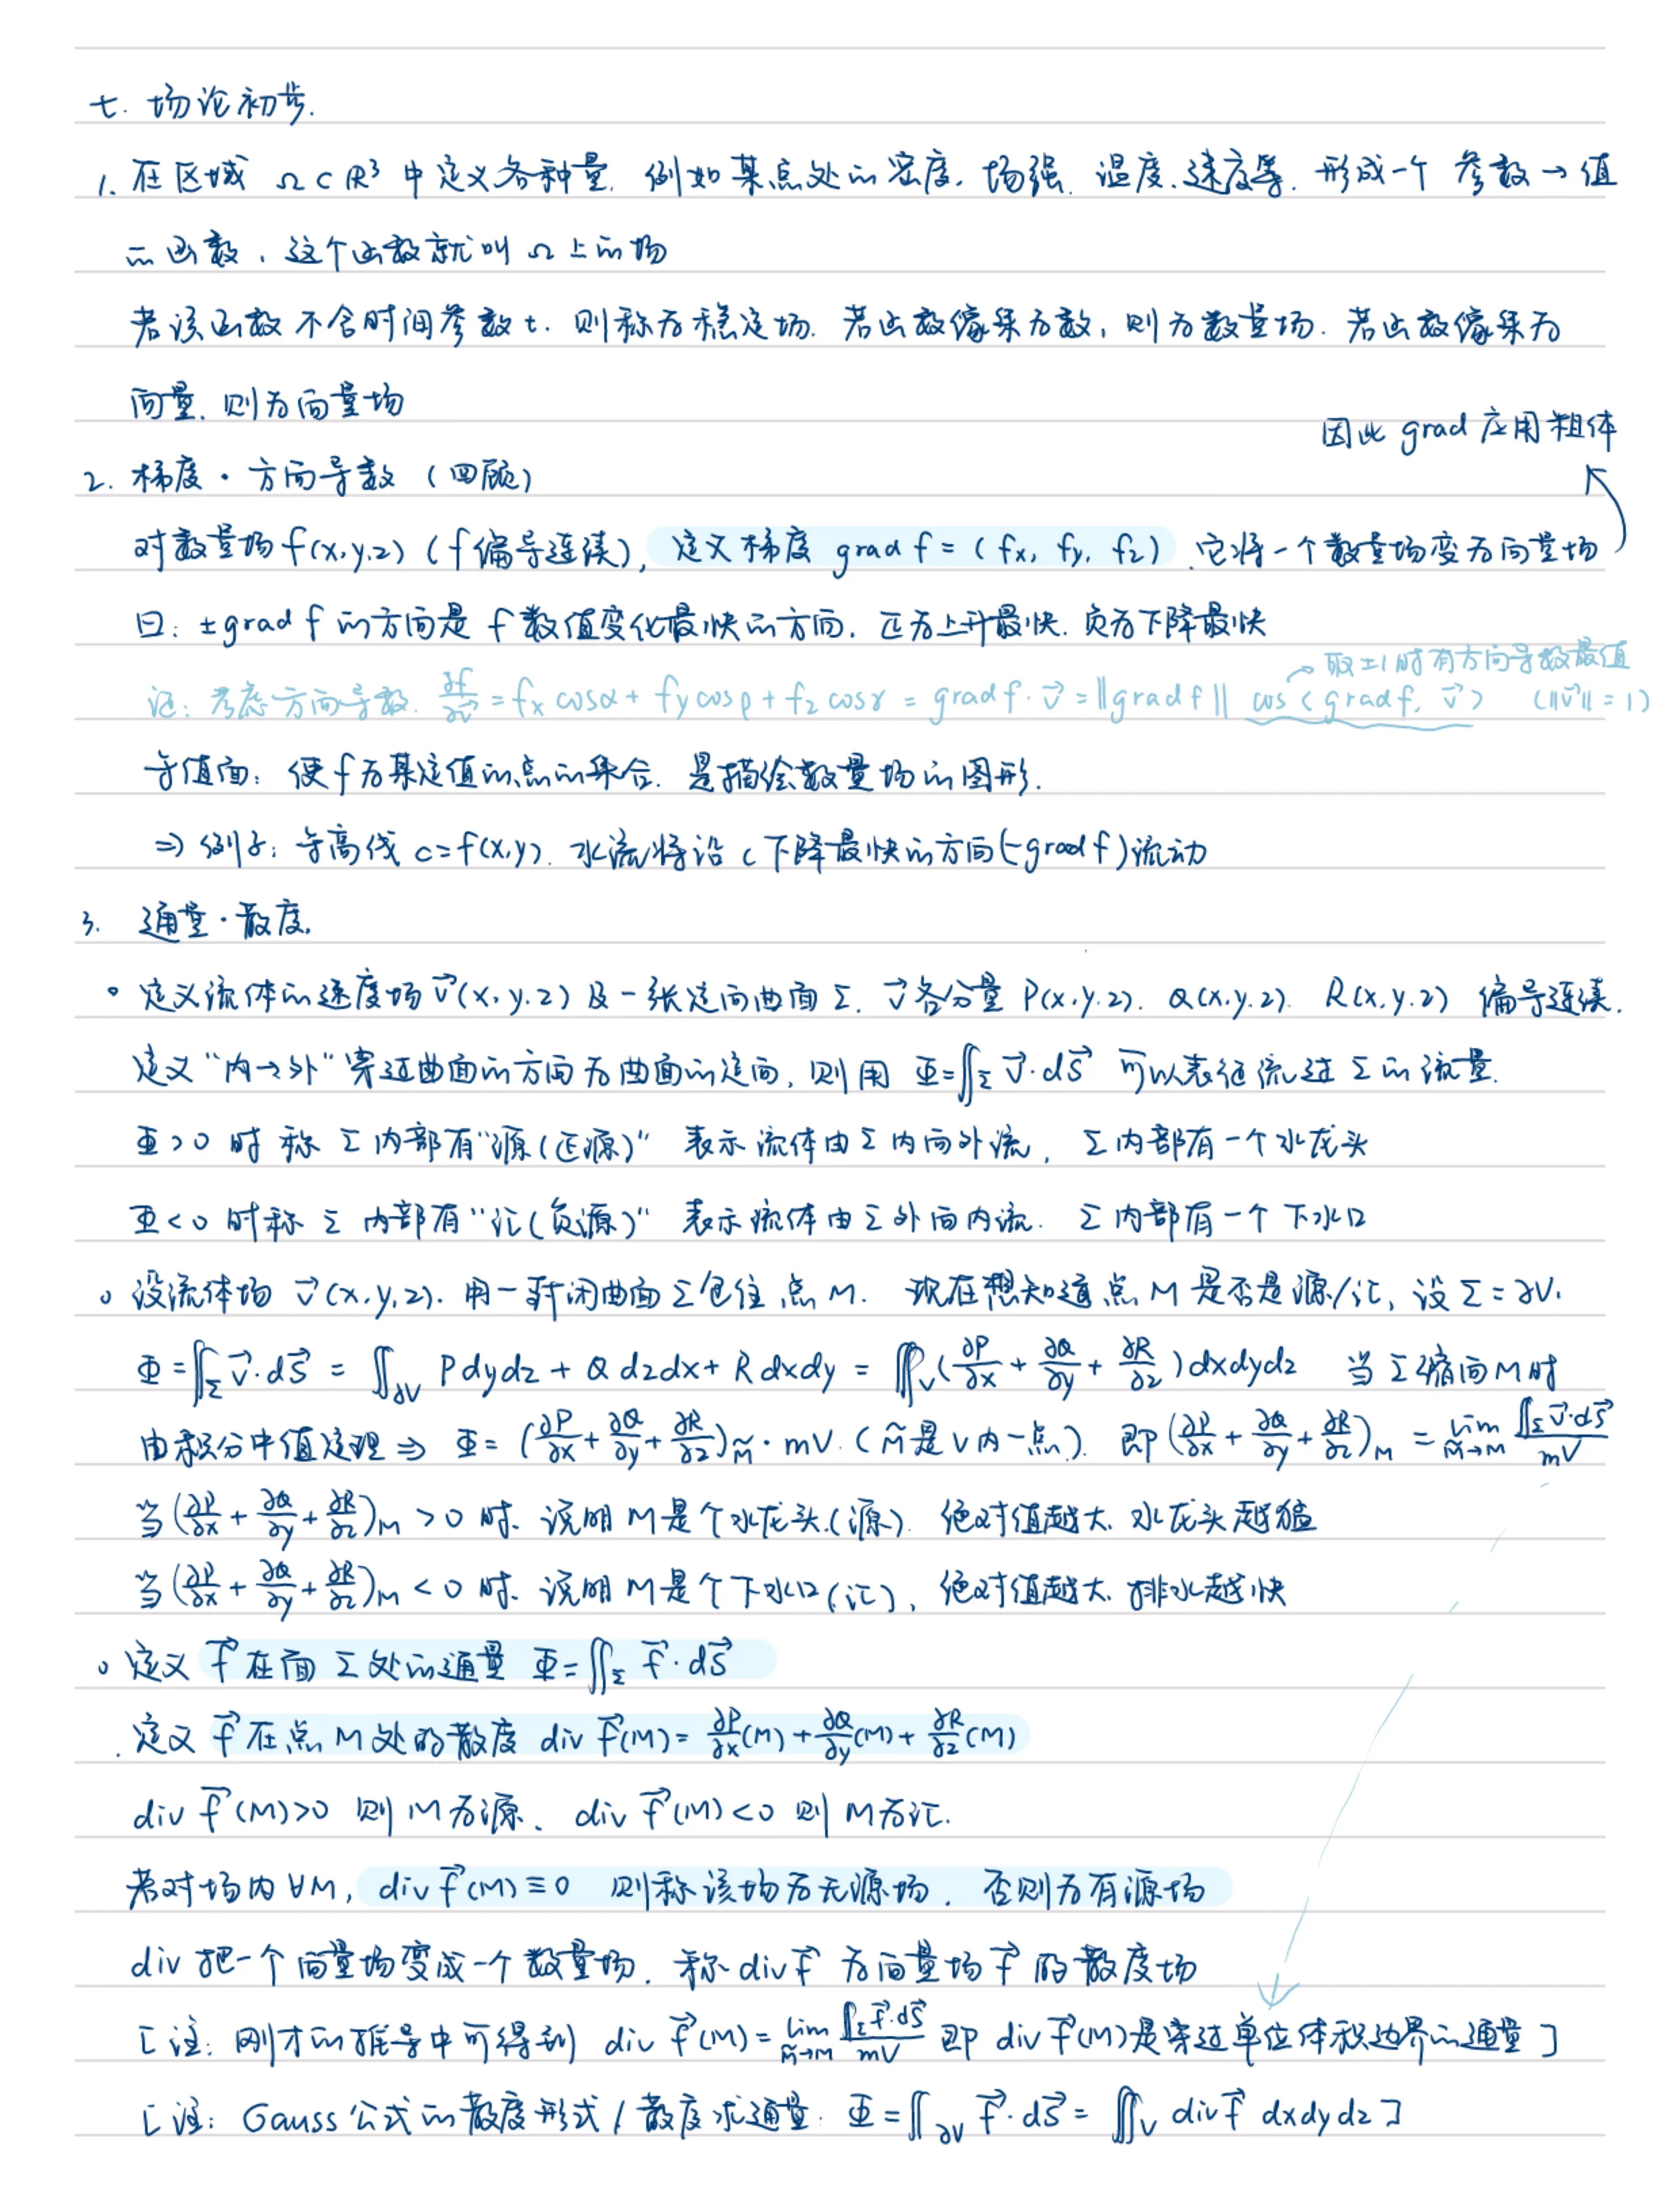 七. 场论初步.
1. 在区域 Ω⊂R³ 中定义各种量. 例如某点处的密度. 场强. 温度. 速度等. 形成一个 参数→值
的函数, 这个函数就叫 Ω 上的场
若该函数不含时间参数 t. 则称为稳定场. 若函数像集为数, 则为数量场. 若函数像集为
向量. 则为向量场
因此 grad 应用粗体
2. 梯度·方向导数 (回顾)
对数量场 f(x,y,z) (f 偏导连续), 定义梯度 grad f = (fx, fy, fz). 它将一个数量场变为向量场
曰: ±grad f 的方向是 f 数值变化最快的方向. 正为上升最快. 负为下降最快
→取±1时有方向导数最值
证: 考虑方向导数. ∂f/∂v⃗ = fx cosα + fy cosβ + fz cosγ = grad f · v⃗ = ‖grad f‖ cos⟨grad f, v⃗⟩ (‖v⃗‖=1)
等值面: 使 f 为某定值的点的集合. 是描绘数量场的图形.
⇒ 例子: 等高线 c=f(x,y). 水流将沿 c 下降最快的方向(-grad f)流动
3. 通量·散度.
∘ 定义流体的速度场 v⃗(x,y,z) 及一张定向曲面 Σ. v⃗各分量 P(x,y,z). Q(x,y,z). R(x,y,z) 偏导连续.
定义"内→外"穿过曲面的方向为曲面的定向, 则用 Φ=∬_Σ v⃗·dS⃗ 可以表征流过 Σ 的流量.
Φ>0 时 称 Σ 内部有"源(正源)" 表示流体由 Σ 内向外流, Σ 内部有一个水龙头
Φ<0 时称 Σ 内部有"汇(负源)" 表示流体由 Σ 外向内流. Σ 内部有一个下水口
∘ 设流体场 v⃗(x,y,z). 用一封闭曲面 Σ 包住点 M. 现在想知道点 M 是否是源/汇, 设 Σ=∂V.
Φ = ∬_Σ v⃗·dS⃗ = ∬_∂V Pdydz + Qdzdx + Rdxdy = ∭_V (∂P/∂x + ∂Q/∂y + ∂R/∂z) dxdydz 当 Σ 缩向 M 时
由积分中值定理 ⇒ Φ = (∂P/∂x + ∂Q/∂y + ∂R/∂z)_M̃ · mV. (M̃ 是 V 内一点). 即 (∂P/∂x + ∂Q/∂y + ∂R/∂z)_M = lim_{M̃→M} ∬_Σ v⃗·dS⃗ / mV
当 (∂P/∂x + ∂Q/∂y + ∂R/∂z)_M > 0 时. 说明 M 是个水龙头.(源). 绝对值越大. 水龙头越猛
当 (∂P/∂x + ∂Q/∂y + ∂R/∂z)_M < 0 时. 说明 M 是个下水口(汇), 绝对值越大. 排水越快
∘ 定义 f⃗ 在面 Σ 处的通量 Φ = ∬_Σ f⃗·dS⃗
. 定义 f⃗ 在点 M 处的散度 div f⃗(M) = ∂P/∂x(M) + ∂Q/∂y(M) + ∂R/∂z(M)
div f⃗(M)>0 则 M 为源. div f⃗(M)<0 则 M 为汇.
若对场内 ∀M, div f⃗(M)≡0 则称该场为无源场. 否则为有源场
div 把一个向量场变成一个数量场. 称 div f⃗ 为向量场 f⃗ 的散度场
[注: 刚才的推导中可得到 div f⃗(M) = lim_{M̃→M} ∬_Σ f⃗·dS⃗ / mV 即 div f⃗(M)是穿过单位体积边界的通量]
[注: Gauss 公式的散度形式 / 散度求通量: Φ = ∬_∂V f⃗·dS⃗ = ∭_V div f⃗ dxdydz]